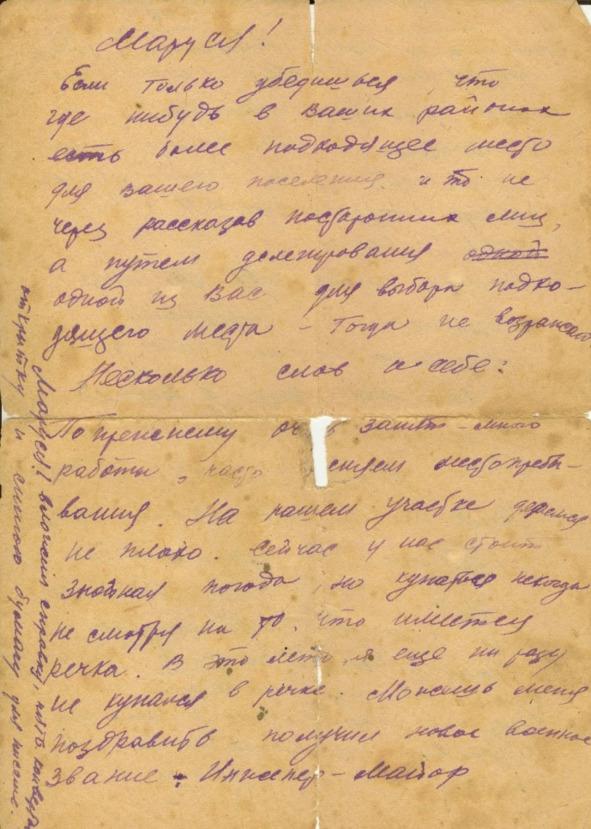 Маруся!
Если только убедишься, что
где нибудь в ваших районах
есть более подходящее место
для вашего поселения и то не
через рассказов посторонних лиц,
а путем делегирования одной
одной из Вас для выбора подхо-
дящего места – тогда не возражаю
Несколько слов о себе:
По прежнему оч занят – много
работы, часто меняем местопребы-
вания. На нашем участке деремся
не плохо. Сейчас у нас стоит
знойная погода, но купаться некогда
не смотря на то, что имеется
речка. В это лето я еще ни разу
не купался в речке. Можешь меня
поздравить получил новое военное
звание. Инженер-Майор
Маруся! выложил справку, пять конверт
открытку и синюю бумагу для письма.